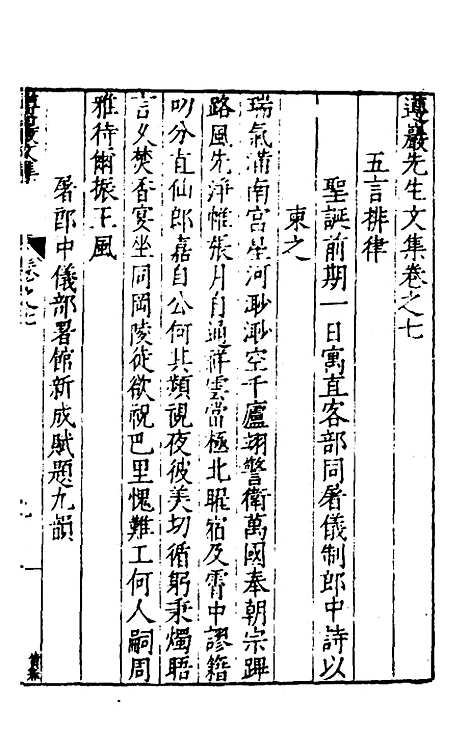 遵巖先生文集卷之七
五言排律
聖誕前期一日寓直客部同屠儀制郎中詩以
柬之
瑞氣滿南宮星河聊溯空千廬翊警衛萬國奉朝宗蹕
路風先淨帷張月自通祥雲當極北曜宿及霄中謬籍
叨分直仙郎嘉自公何其頻視夜彼美切循躬秉燭晤
言久焚香宴坐同岡陵徒欲祝巴里愧難工何人嗣周
雅待爾振王風
屠郎中儀部署館新成賦題九韻